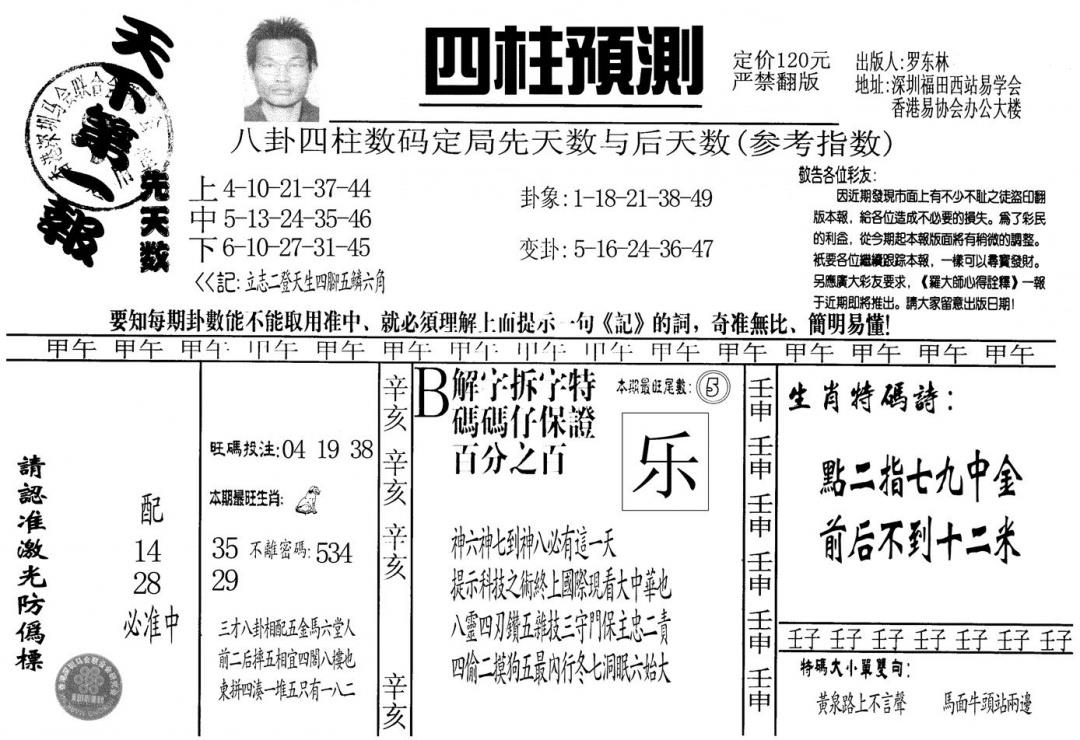 天下第一報
四柱預測
定价120元
严禁翻版
出版人:罗东林
地址:深圳福田西站易学会
香港易协会办公大楼
八卦四柱数码定局先天数与后天数(参考指数)
先天数
上 4-10-21-37-44
中 5-13-24-35-46
下 6-10-27-31-45
卦象:1-18-21-38-49
变卦:5-16-24-36-47
<<記:立志二登天生四腳五鱗六角
敬告各位彩友:
因近期發現市面上有不少不耻之徒盜印翻
版本報,給各位造成不必要的損失。爲了彩民
的利益,從今期起本報版面將有稍微的調整。
衹要各位繼續跟踪本報,一樣可以尋寶發財。
另應廣大彩友要求,《羅大師心得詮釋》一報
于近期即將推出。請大家留意出版日期!
要知每期卦數能不能取用准中、就必須理解上面提示一句《記》的詞,奇准無比、簡明易懂!
甲午 甲午 甲午 甲午 甲午 甲午 甲午 甲午 甲午 甲午 甲午 甲午 甲午 甲午 甲午
請認准激光防僞標
配
14
28
必准中
旺碼投注:04 19 38
本期最旺生肖:
35 不離密碼:534
29
三才八卦相配五金馬六堂人
前二后摔五相宜四闊八摟也
東拼四湊一堆五只有一八二
辛亥
辛亥
辛亥
辛亥
B解字拆字特
碼碼仔保證
百分之百
本期最旺尾數:5
乐
神六神七到神八必有這一天
提示科技之術終上國際現看大中華也
八靈四刃鑽五雜技三守門保主忠二責
四偷二摸狗五最內行冬七洞眠六始大
壬申
壬申
壬申
壬申
壬申
壬申
生肖特碼詩:
點二指七九中金
前后不到十二米
壬子 壬子 壬子 壬子 壬子 壬子 壬子
特碼大小單雙句:
黃泉路上不言聲 馬面牛頭站兩邊